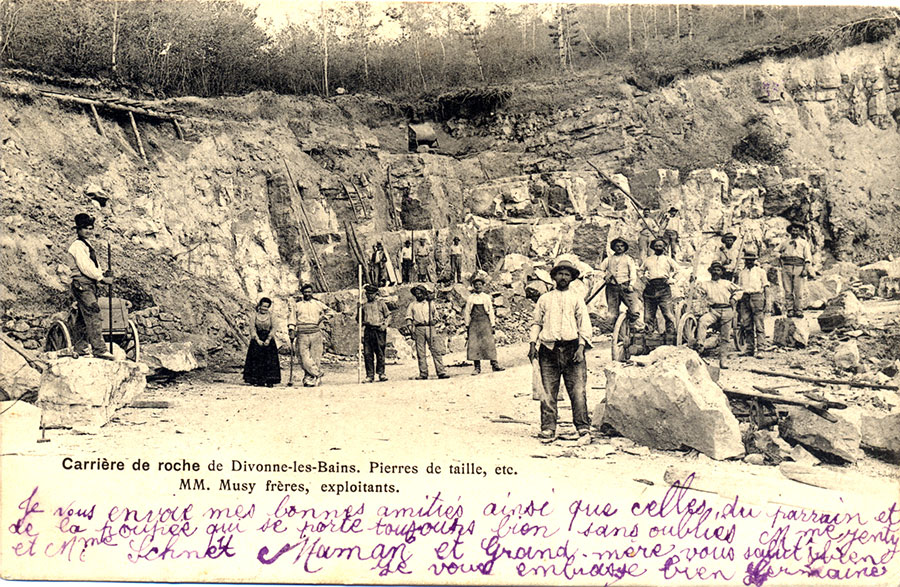 Carrière de roche de Divonne-les-Bains. Pierres de taille, etc.
MM. Musy frères, exploitants.
Je vous envoie mes bonnes amitiés ainsi que celles du parrain et
de la poupée qui se porte toujours bien sans oublier Mme
et Mr Maman et Grand-mère vous saluent bien
Je vous embrasse bien Germaine